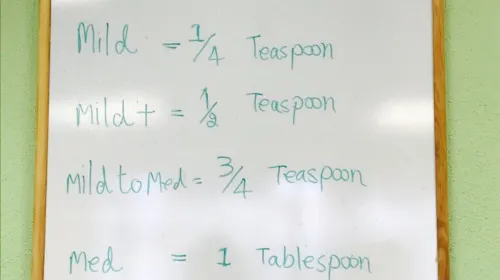 Mild = 1/4 Teaspoon
Mild + = 1/2 Teaspoon
Mild to Med = 3/4 Teaspoon
Med = 1 Tablespoon